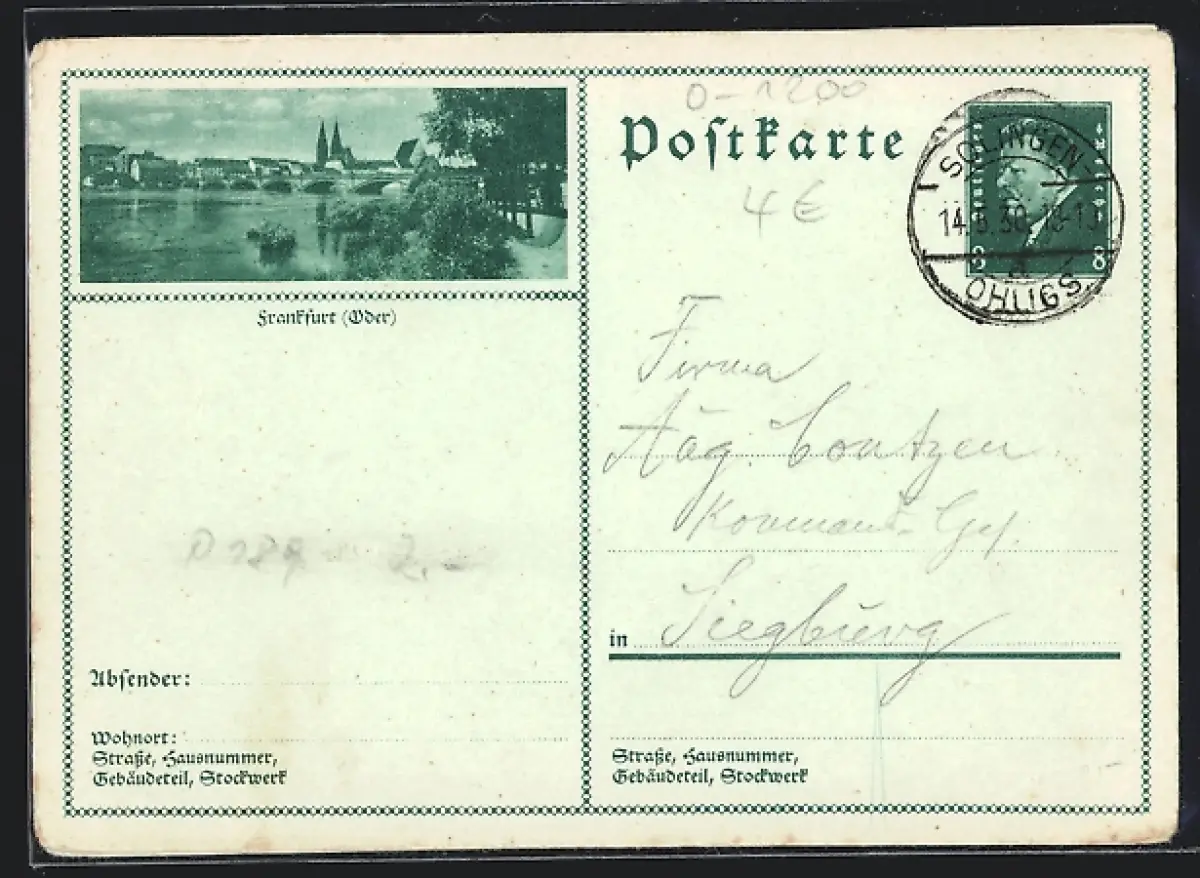 O-1200
Postkarte
4 €
SOLINGEN-
OHLIGS
8 8
Frankfurt (Oder)
Firma
Aug. Contzen
Kommand. Ges.
in Siegburg
Absender:
Wohnort:
Straße, Hausnummer,
Gebäudeteil, Stockwerk
Straße, Hausnummer,
Gebäudeteil, Stockwerk